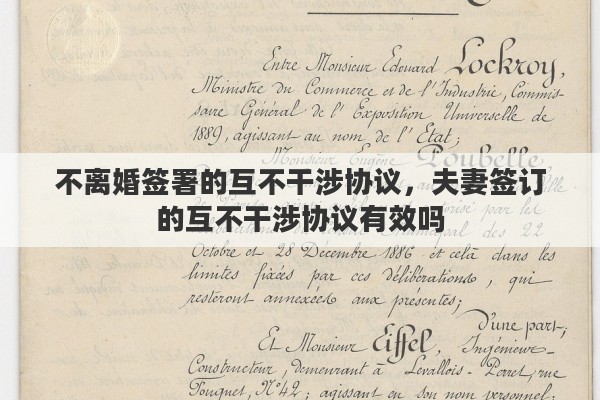 Entre Monsieur Edouard Lockroy,
Ministre du Commerce et de l'Industrie, Commis-
saire Général de l'Exposition Universelle de
1889, agissant au nom de l'Etat;
Monsieur Eugène Poubelle
不离婚签署的互不干涉协议，夫妻签订
的互不干涉协议有效吗
par les
des 22
Octobre et 28 Décembre 1886 et celà dans les
limites fixées par ces délibérations, qui
resteront annexées aux présentes;
D'une part;
Et Monsieur Eiffel, Ingénieur-
Constructeur, demeurant à Levallois-Perret, rue
Fouquet, N° 42; agissant en son nom personnel;